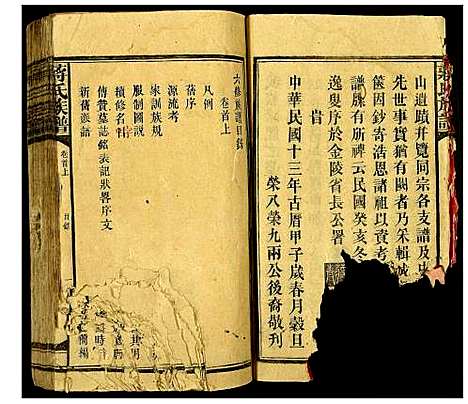 山遺蹟并覽同宗各支譜及史
先世事實猶有闕者乃采輯
篋因鈔寄浩恩諸祖以資考
譜牒有所裨云民國癸亥冬
逸叟序於金陵省長公署
旹
中華民國十三年古曆甲子歲春月穀旦
榮八榮九兩公後裔敬刊
蔣氏族譜
卷首上
目錄
六修族譜目錄
卷首上
凡例
舊序
源流考
家訓族規
服制圖說
續修名刊
傳贊墓誌銘表記狀畧序文
新舊派語